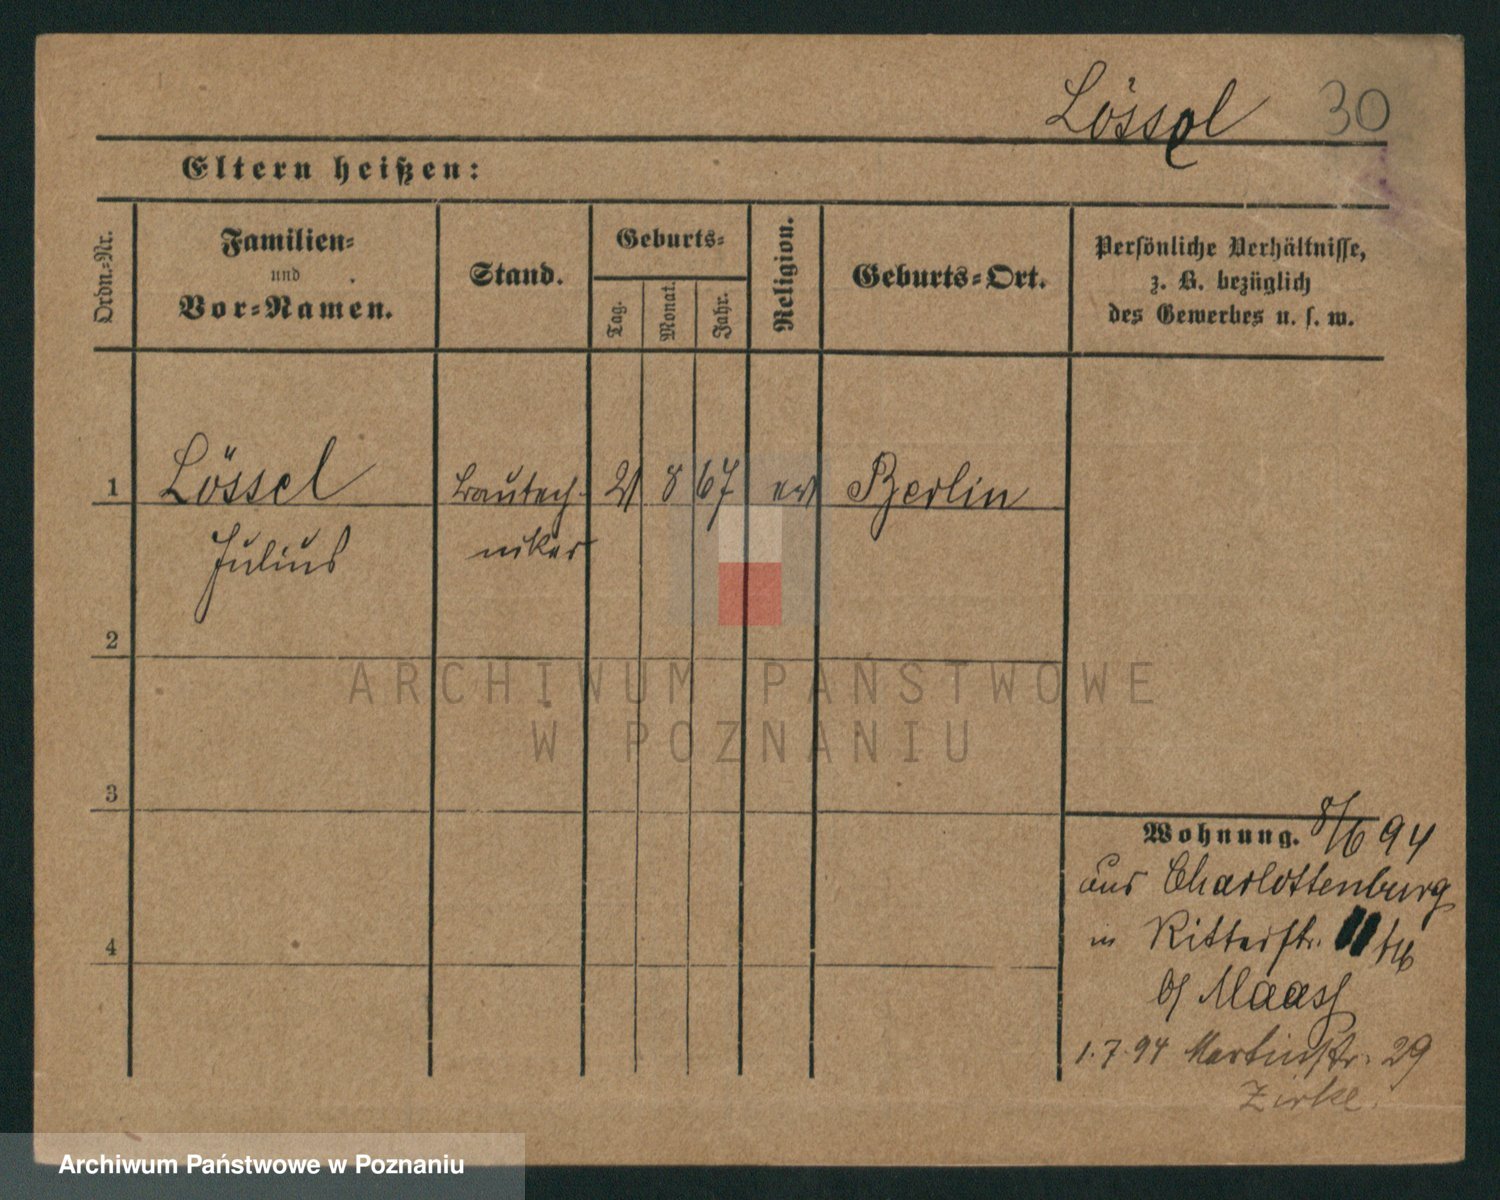 Lössel 30
Eltern heißen:
Ordn.=Nr.
Familien=
und
Vor=Namen.
Stand.
Geburts=
Tag.
Monat.
Jahr.
Religion.
Geburts=Ort.
Persönliche Verhältnisse,
z. B. bezüglich
des Gewerbes u. s. w.
1 Lössel Bautech- 21 8 67 ev Berlin
Julius niker
2
ARCHIWUM PAŃSTWOWE
W POZNANIU
3
Wohnung. 8/6 94
aus Charlottenburg
4
in Ritterstr.
b/ Maass
1.7.94 Martinstr. 29
Zirke.
Archiwum Państwowe w Poznaniu